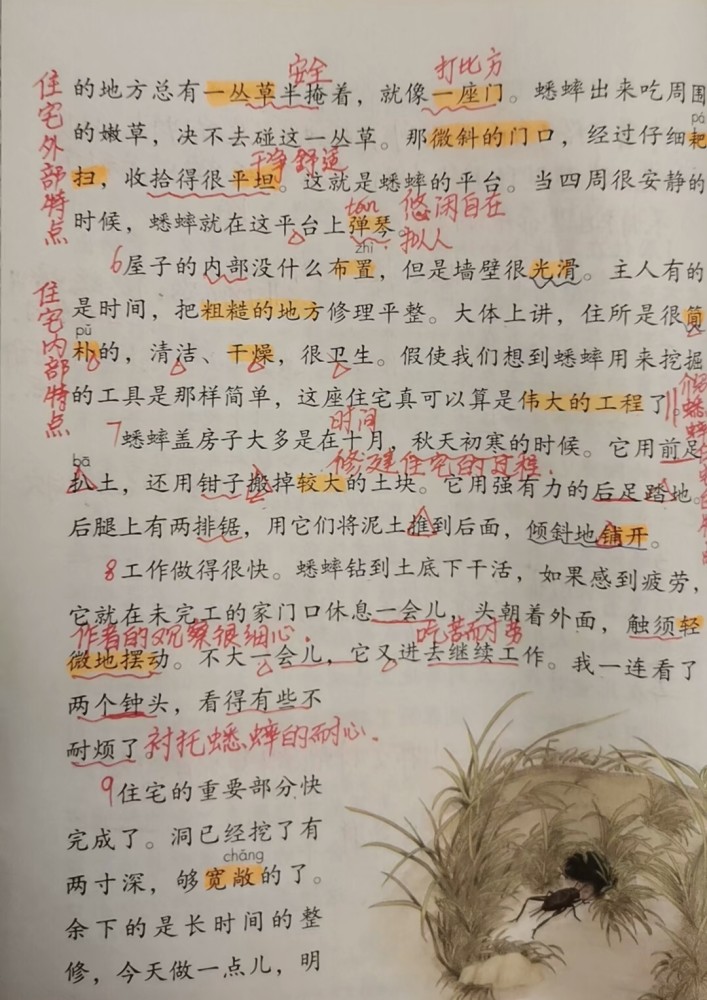 安全 打比方
的地方总有一丛草半掩着，就像一座门。蟋蟀出来吃周围
pá
的嫩草，决不去碰这一丛草。那微斜的门口，经过仔细耙
干净舒适
扫，收拾得很平坦。这就是蟋蟀的平台。当四周很安静的
tán 悠闲自在
时候，蟋蟀就在这平台上弹琴。
拟人
住宅外部特点
zhì
6屋子的内部没什么布置，但是墙壁很光滑。主人有的
是时间，把粗糙的地方修理平整。大体上讲，住所是很简
pǔ
朴的，清洁、干燥，很卫生。假使我们想到蟋蟀用来挖掘
的工具是那样简单，这座住宅真可以算是伟大的工程了。
住宅内部特点
时间
7蟋蟀盖房子大多是在十月，秋天初寒的时候。它用前足
bā 修建住宅的过程.
扒土，还用钳子搬掉较大的土块。它用强有力的后足踏地。
后腿上有两排锯，用它们将泥土推到后面，倾斜地铺开。
8工作做得很快。蟋蟀钻到土底下干活，如果感到疲劳，
它就在未完工的家门口休息一会儿，头朝着外面，触须轻
作者的观察很细心. 吃苦耐劳
微地摆动。不大一会儿，它又进去继续工作。我一连看了
两个钟头，看得有些不
耐烦了 衬托蟋蟀的耐心.
9住宅的重要部分快
完成了。洞已经挖了有
chǎng
两寸深，够宽敞的了。
余下的是长时间的整
修，今天做一点儿，明